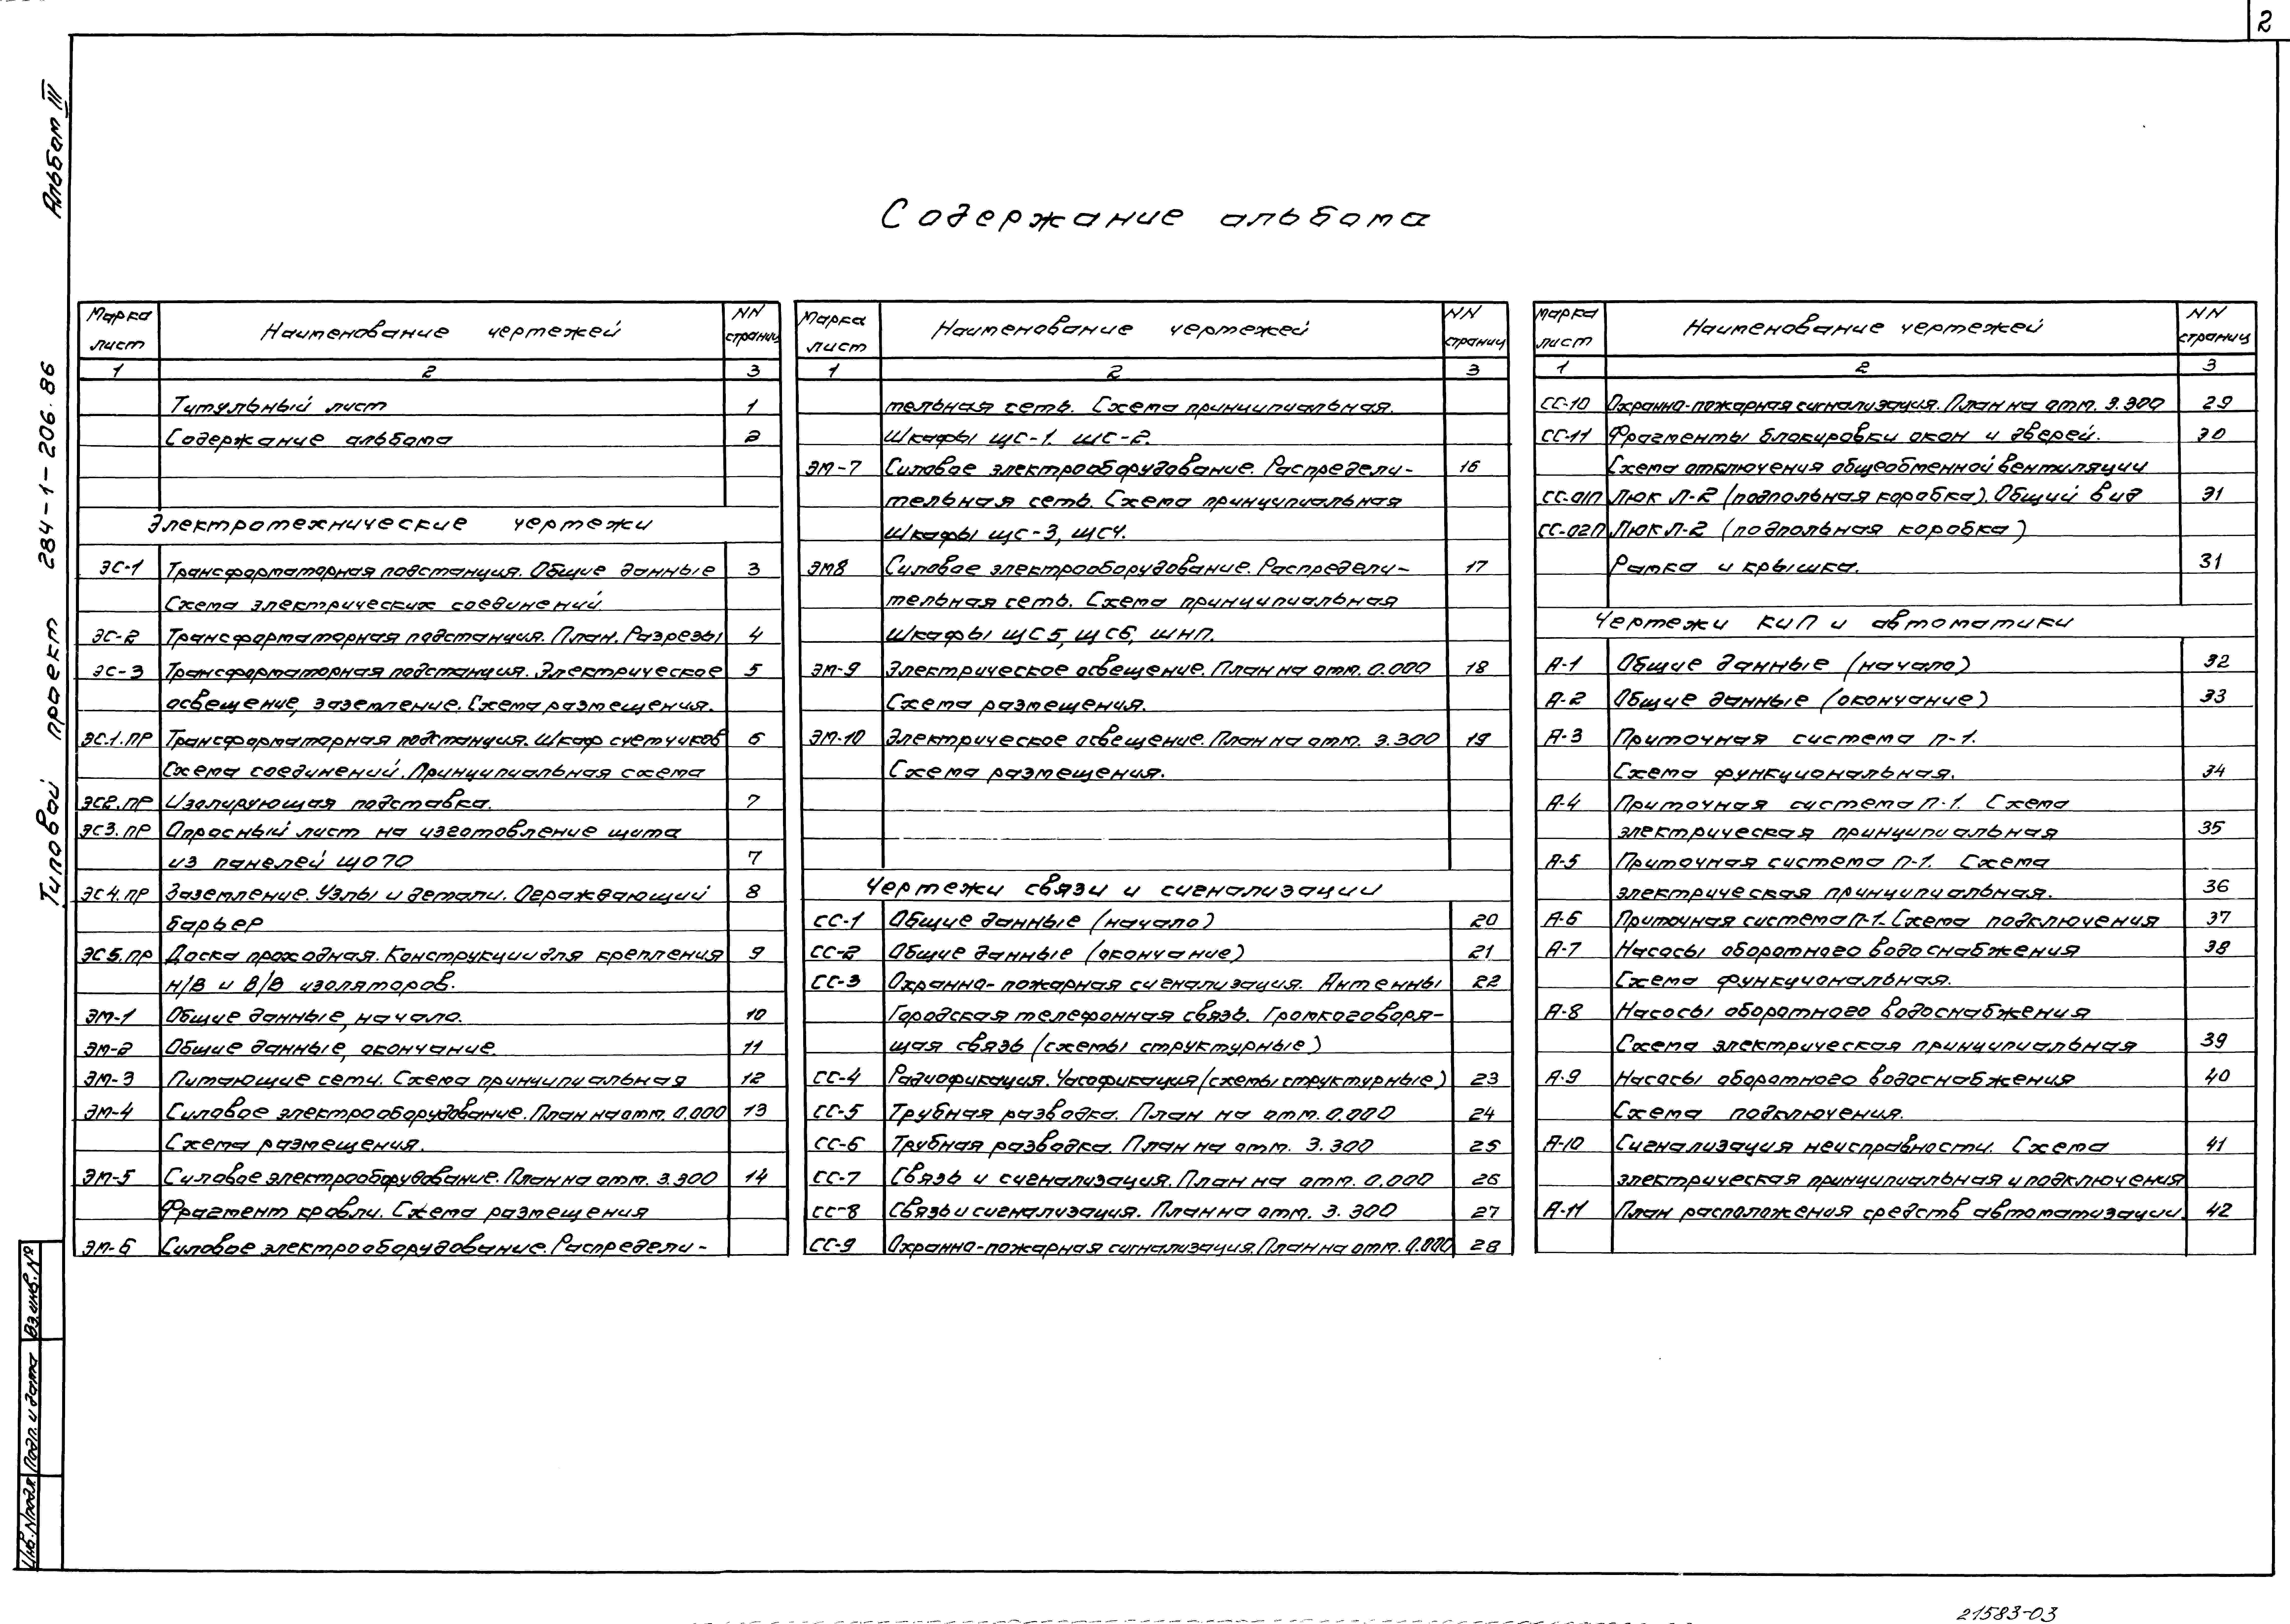 2
Альбом III
Типовой проект 284-1-206.86
Содержание альбома
Марка лист Наименование чертежей NN страниц
1 2 3
Титульный лист 1
Содержание альбома 2
Электротехнические чертежи
ЭС-1 Трансформаторная подстанция. Общие данные 3
Схема электрических соединений
ЭС-2 Трансформаторная подстанция. План. Разрезы 4
ЭС-3 Трансформаторная подстанция. Электрическое 5
освещение, заземление. Схема размещения.
ЭС.1.ПР Трансформаторная подстанция. Шкаф счетчиков 6
Схема соединений. Принципиальная схема
ЭС2.ПР Изолирующая подставка. 7
ЭС3.ПР Опросный лист на изготовление щита
из панелей ЩО70 7
ЭС4.ПР Заземление. Узлы и детали. Ограждающий 8
барьер
ЭС5.ПР Доска проходная. Конструкции для крепления 9
Н/В и В/В изоляторов.
ЭМ-1 Общие данные, начало. 10
ЭМ-2 Общие данные, окончание. 11
ЭМ-3 Питающие сети. Схема принципиальная 12
ЭМ-4 Силовое электрооборудование. План на отм. 0.000 13
Схема размещения.
ЭМ-5 Силовое электрооборудование. План на отм. 3.300 14
Фрагмент кровли. Схема размещения
ЭМ-6 Силовое электрооборудование. Распредели-
Марка лист Наименование чертежей NN страниц
1 2 3
тельная сеть. Схема принципиальная.
Шкафы ЩС-1. ЩС-2.
ЭМ-7 Силовое электрооборудование. Распредели- 16
тельная сеть. Схема принципиальная
Шкафы ЩС-3, ЩС4.
ЭМ8 Силовое электрооборудование. Распредели- 17
тельная сеть. Схема принципиальная
Шкафы ЩС5, ЩС6, ШНП.
ЭМ-9 Электрическое освещение. План на отм. 0.000 18
Схема размещения.
ЭМ-10 Электрическое освещение. План на отм. 3.300 19
Схема размещения.
Чертежи связи и сигнализации
СС-1 Общие данные (начало) 20
СС-2 Общие данные (окончание) 21
СС-3 Охранно-пожарная сигнализация. Антенны 22
Городская телефонная связь. Громкоговоря-
щая связь (схемы структурные)
СС-4 Радиофикация. Часофикация (схемы структурные) 23
СС-5 Трубная разводка. План на отм. 0.000 24
СС-6 Трубная разводка. План на отм. 3.300 25
СС-7 Связь и сигнализация. План на отм. 0.000 26
СС-8 Связь и сигнализация. План на отм. 3.300 27
СС-9 Охранно-пожарная сигнализация. План на отм. 0.000 28
Марка лист Наименование чертежей NN страниц
1 2 3
СС-10 Охранно-пожарная сигнализация. План на отм. 3.300 29
СС-11 Фрагменты блокировки окон и дверей. 30
Схема отключения общеобменной вентиляции
СС-01П Люк Л-2 (подпольная коробка). Общий вид 31
СС-02П Люк Л-2 (подпольная коробка)
Рамка и крышка. 31
Чертежи КиП и автоматики
А-1 Общие данные (начало) 32
А-2 Общие данные (окончание) 33
А-3 Приточная система П-1.
Схема функциональная. 34
А-4 Приточная система П-1. Схема
электрическая принципиальная 35
А-5 Приточная система П-1. Схема
электрическая принципиальная. 36
А-6 Приточная система П-1. Схема подключения 37
А-7 Насосы оборотного водоснабжения 38
Схема функциональная.
А-8 Насосы оборотного водоснабжения
Схема электрическая принципиальная 39
А-9 Насосы оборотного водоснабжения 40
Схема подключения.
А-10 Сигнализация неисправности. Схема 41
электрическая принципиальная и подключения
А-11 План расположения средств автоматизации. 42
Инв.Nподл. Подп. и дата Вз.инв.№
21583-03